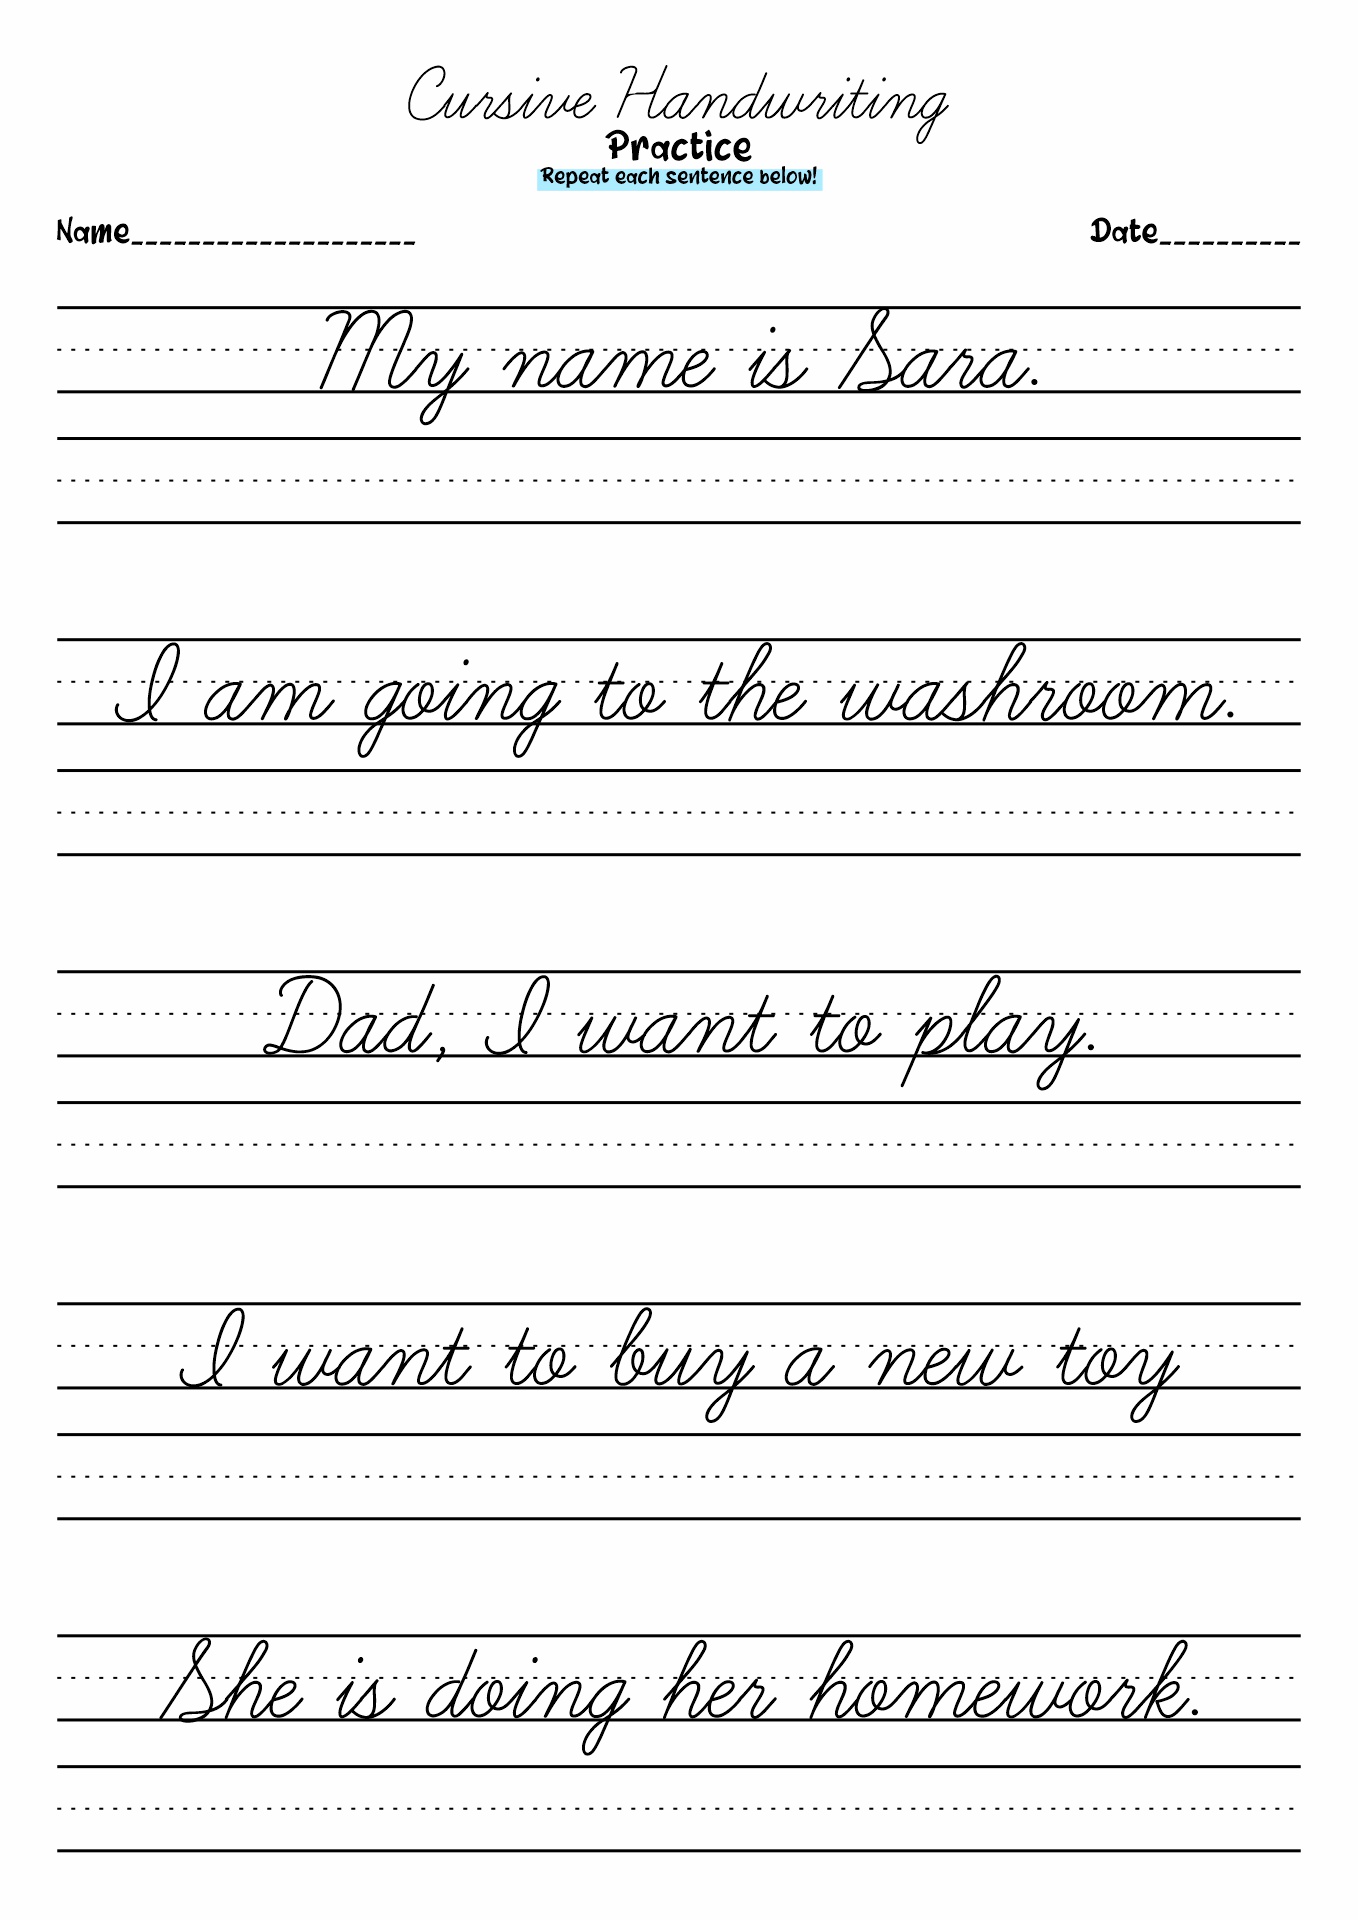 Cursive Handwriting
Practice
Repeat each sentence below!
Name____________________ Date__________
My name is Sara.
I am going to the washroom.
Dad, I want to play.
I want to buy a new toy
She is doing her homework.